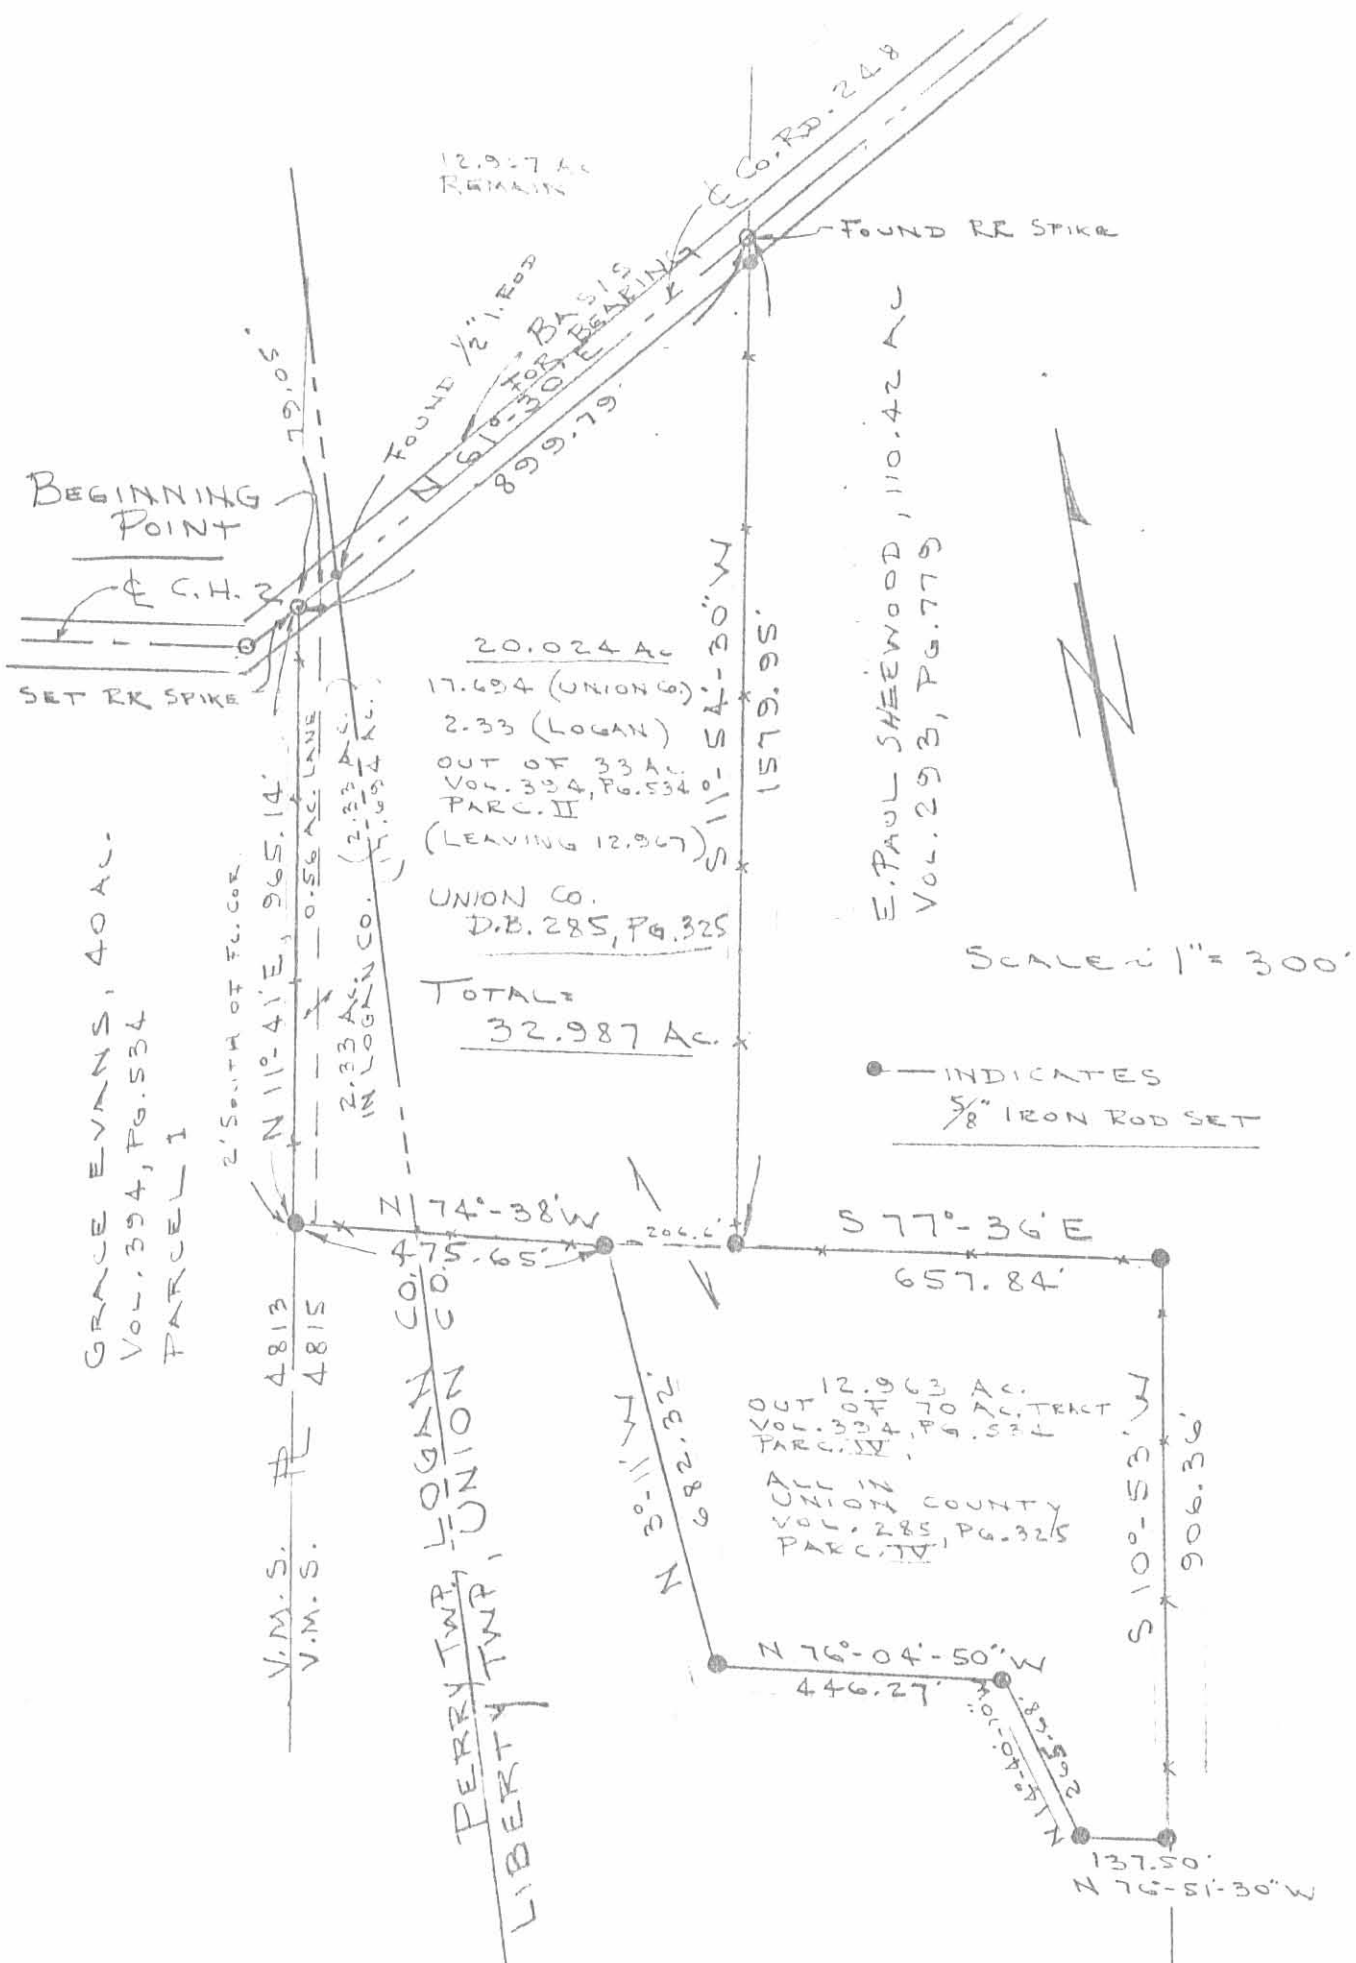 12.967 Ac
REMAIN
℄ Co. RD. 248
FOUND RR SPIKE
79.05'
FOUND 1/2" I. ROD
BASIS
FOR BEARING
N 61°-30' E
899.79'
BEGINNING
POINT
℄ C.H. 2
SET RR SPIKE
20.024 Ac
17.694 (UNION CO.)
2.33 (LOGAN)
OUT OF 33 Ac.
VOL. 394, PG. 534
PARC. II
(LEAVING 12.967)
UNION CO.
D.B. 285, PG. 325
TOTAL=
32.987 Ac.
S 11°-54'-30" W
1579.95'
E. PAUL SHERWOOD, 110.42 Ac
VOL. 293, PG. 779
SCALE ~ 1" = 300'
INDICATES
5/8" IRON ROD SET
GRACE EVANS, 40 Ac.
VOL. 394, PG. 534
PARCEL I
2' SOUTH OF FC. COR.
N 11°-41' E, 965.14'
0.56 Ac. LANE
2.33 Ac.
IN LOGAN CO.
(2.33 Ac.)
(17.694 Ac.)
N 74°-38' W
475.65'
206.6'
S 77°-36' E
657.84'
V.M.S. 4813
V.M.S. 4815
PERRY TWP., LOGAN CO.
LIBERTY TWP., UNION CO.
N 3°-11' W
682.32'
12.963 Ac.
OUT OF 70 Ac. TRACT
VOL. 394, PG. 534
PARC. IV,
ALL IN
UNION COUNTY
VOL. 285, PG. 325
PARC. IV
S 10°-53' W
906.36'
N 76°-04'-50" W
446.27'
N 14°-40'-10" W
265.68'
137.50'
N 76°-51'-30" W